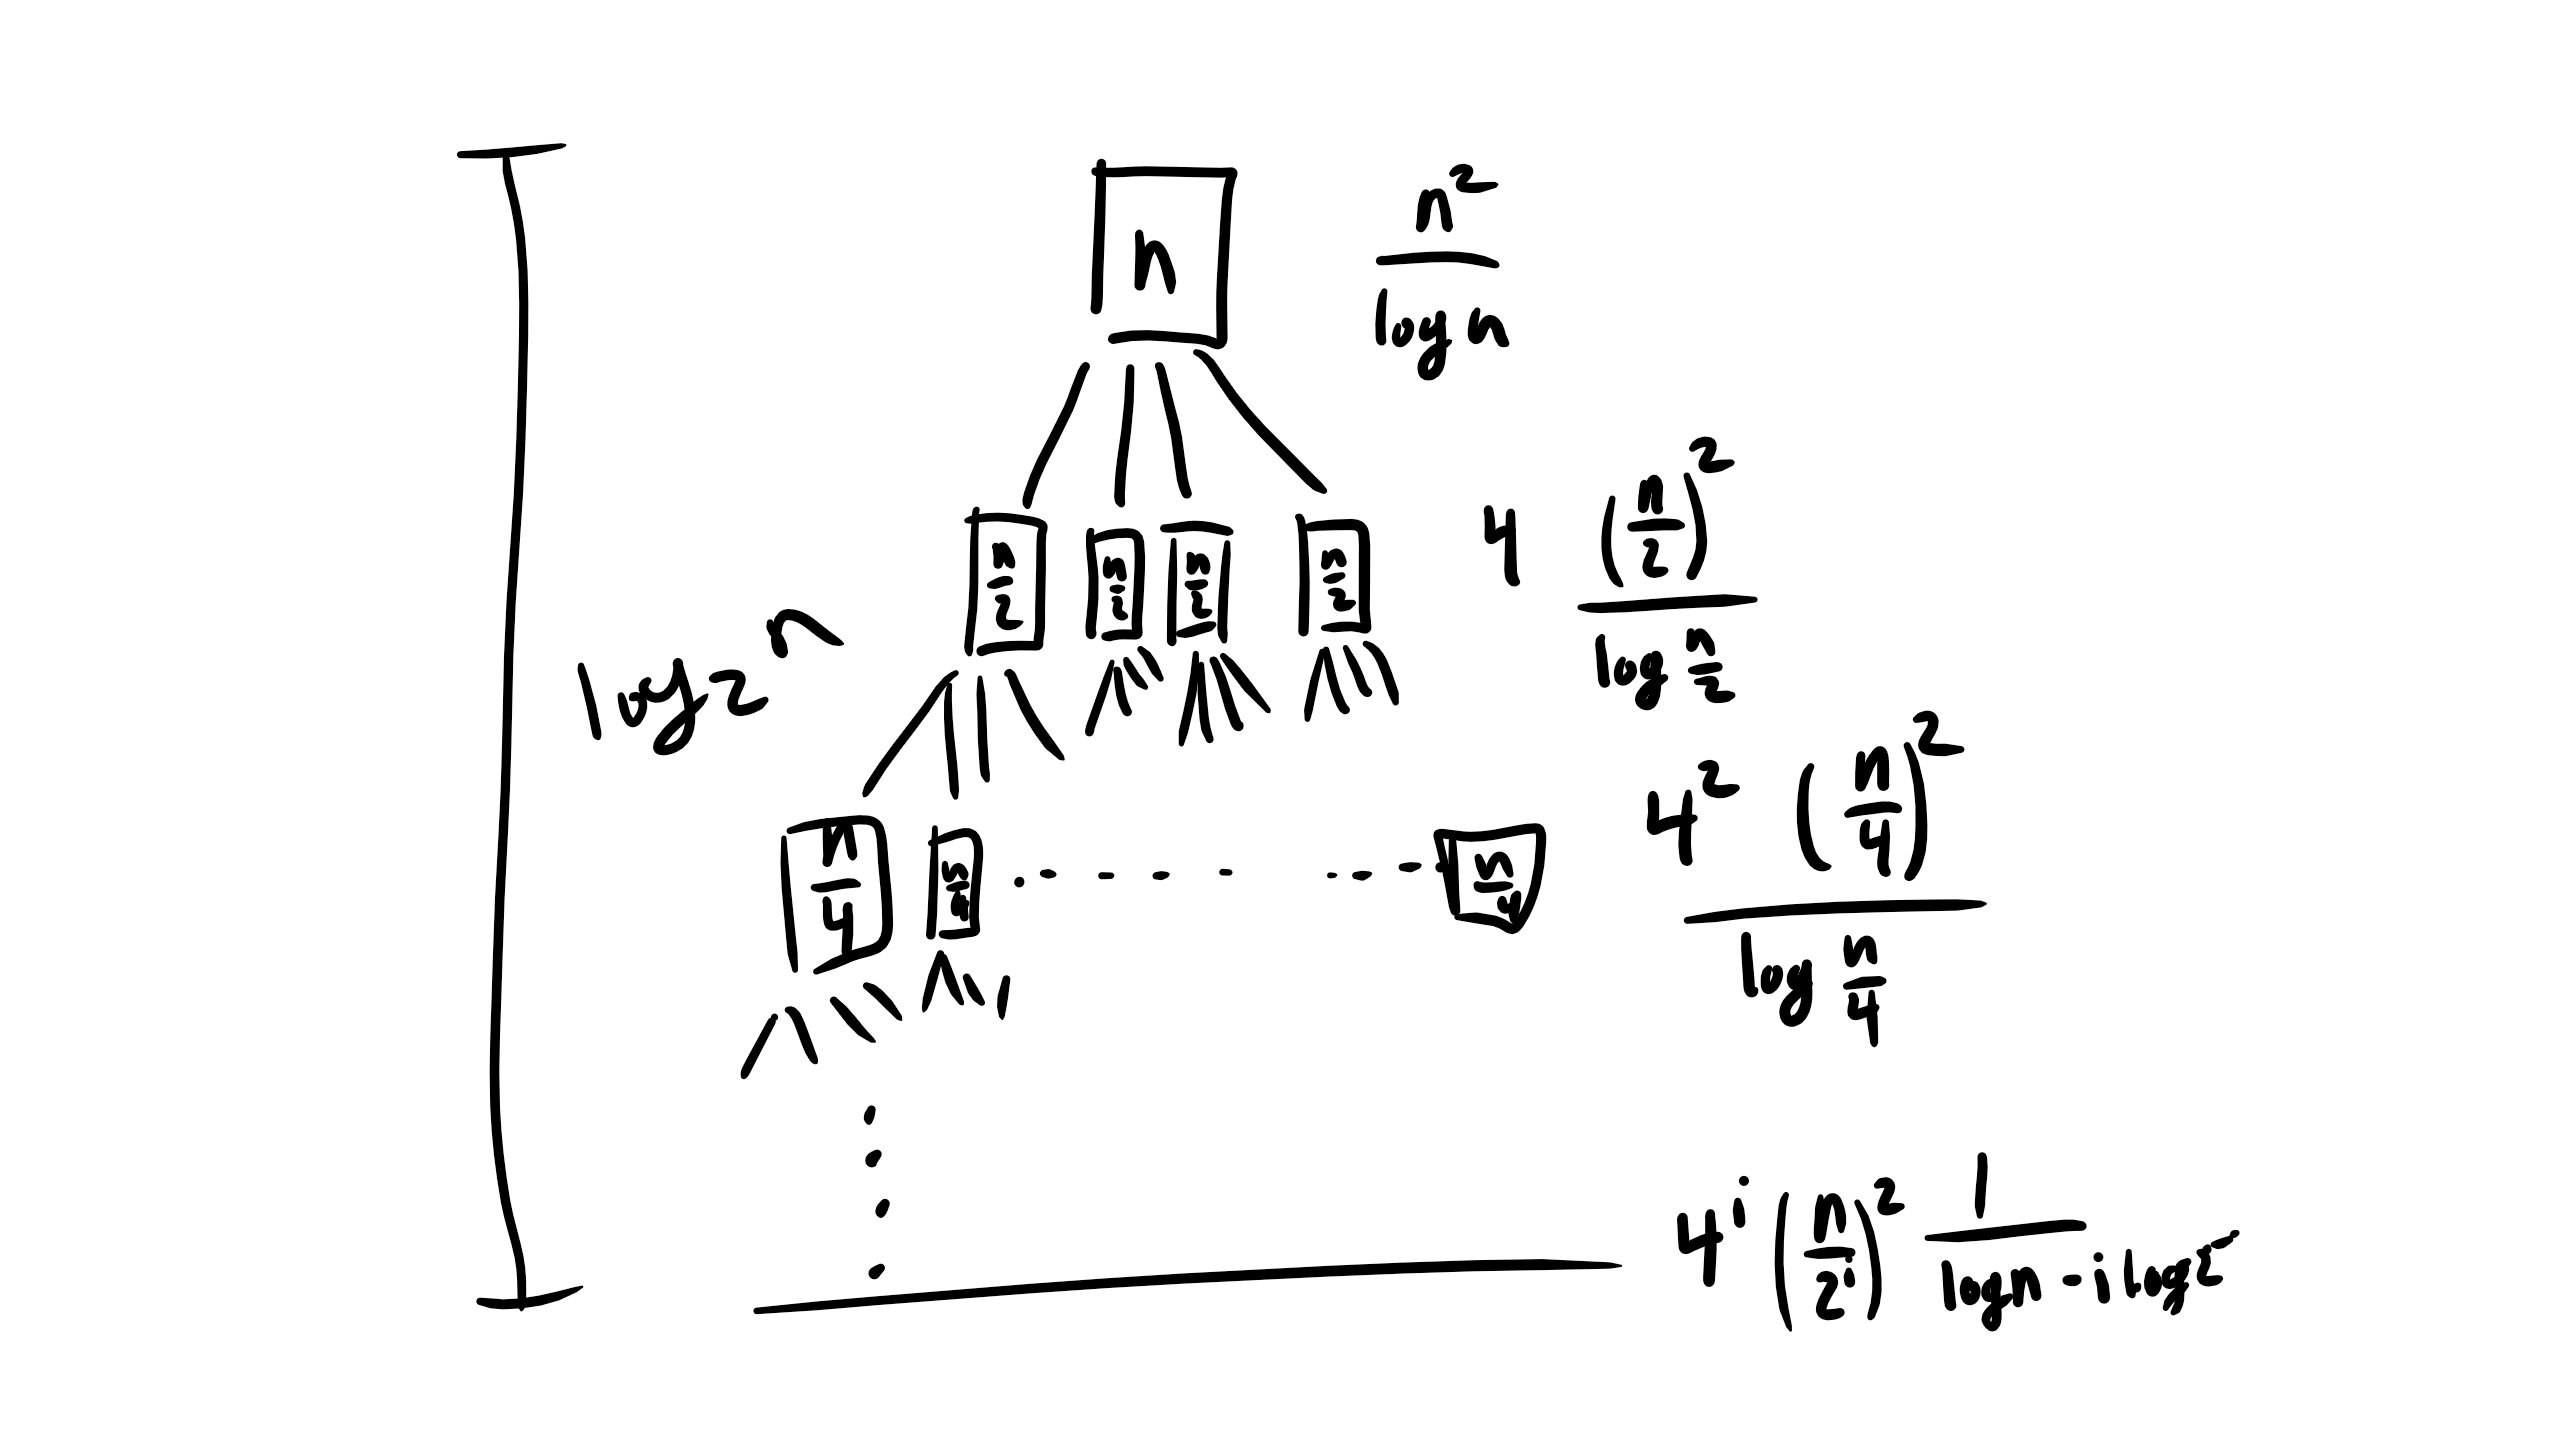 n
n²
log n
n/2 n/2 n/2 n/2
4 (n/2)²
log n/2
log₂ n
n/4 n/4 . . . . . . . . . n/4
4² (n/4)²
log n/4
4ⁱ (n/2ⁱ)² 1
log n - i log 2